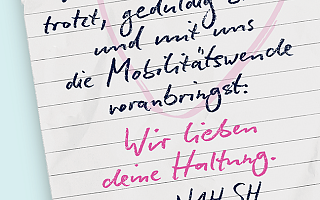 trotzt, geduldig
und mit uns
die Mobilitätswende
voranbringst:
Wir lieben
deine Haltung.
NAH SH